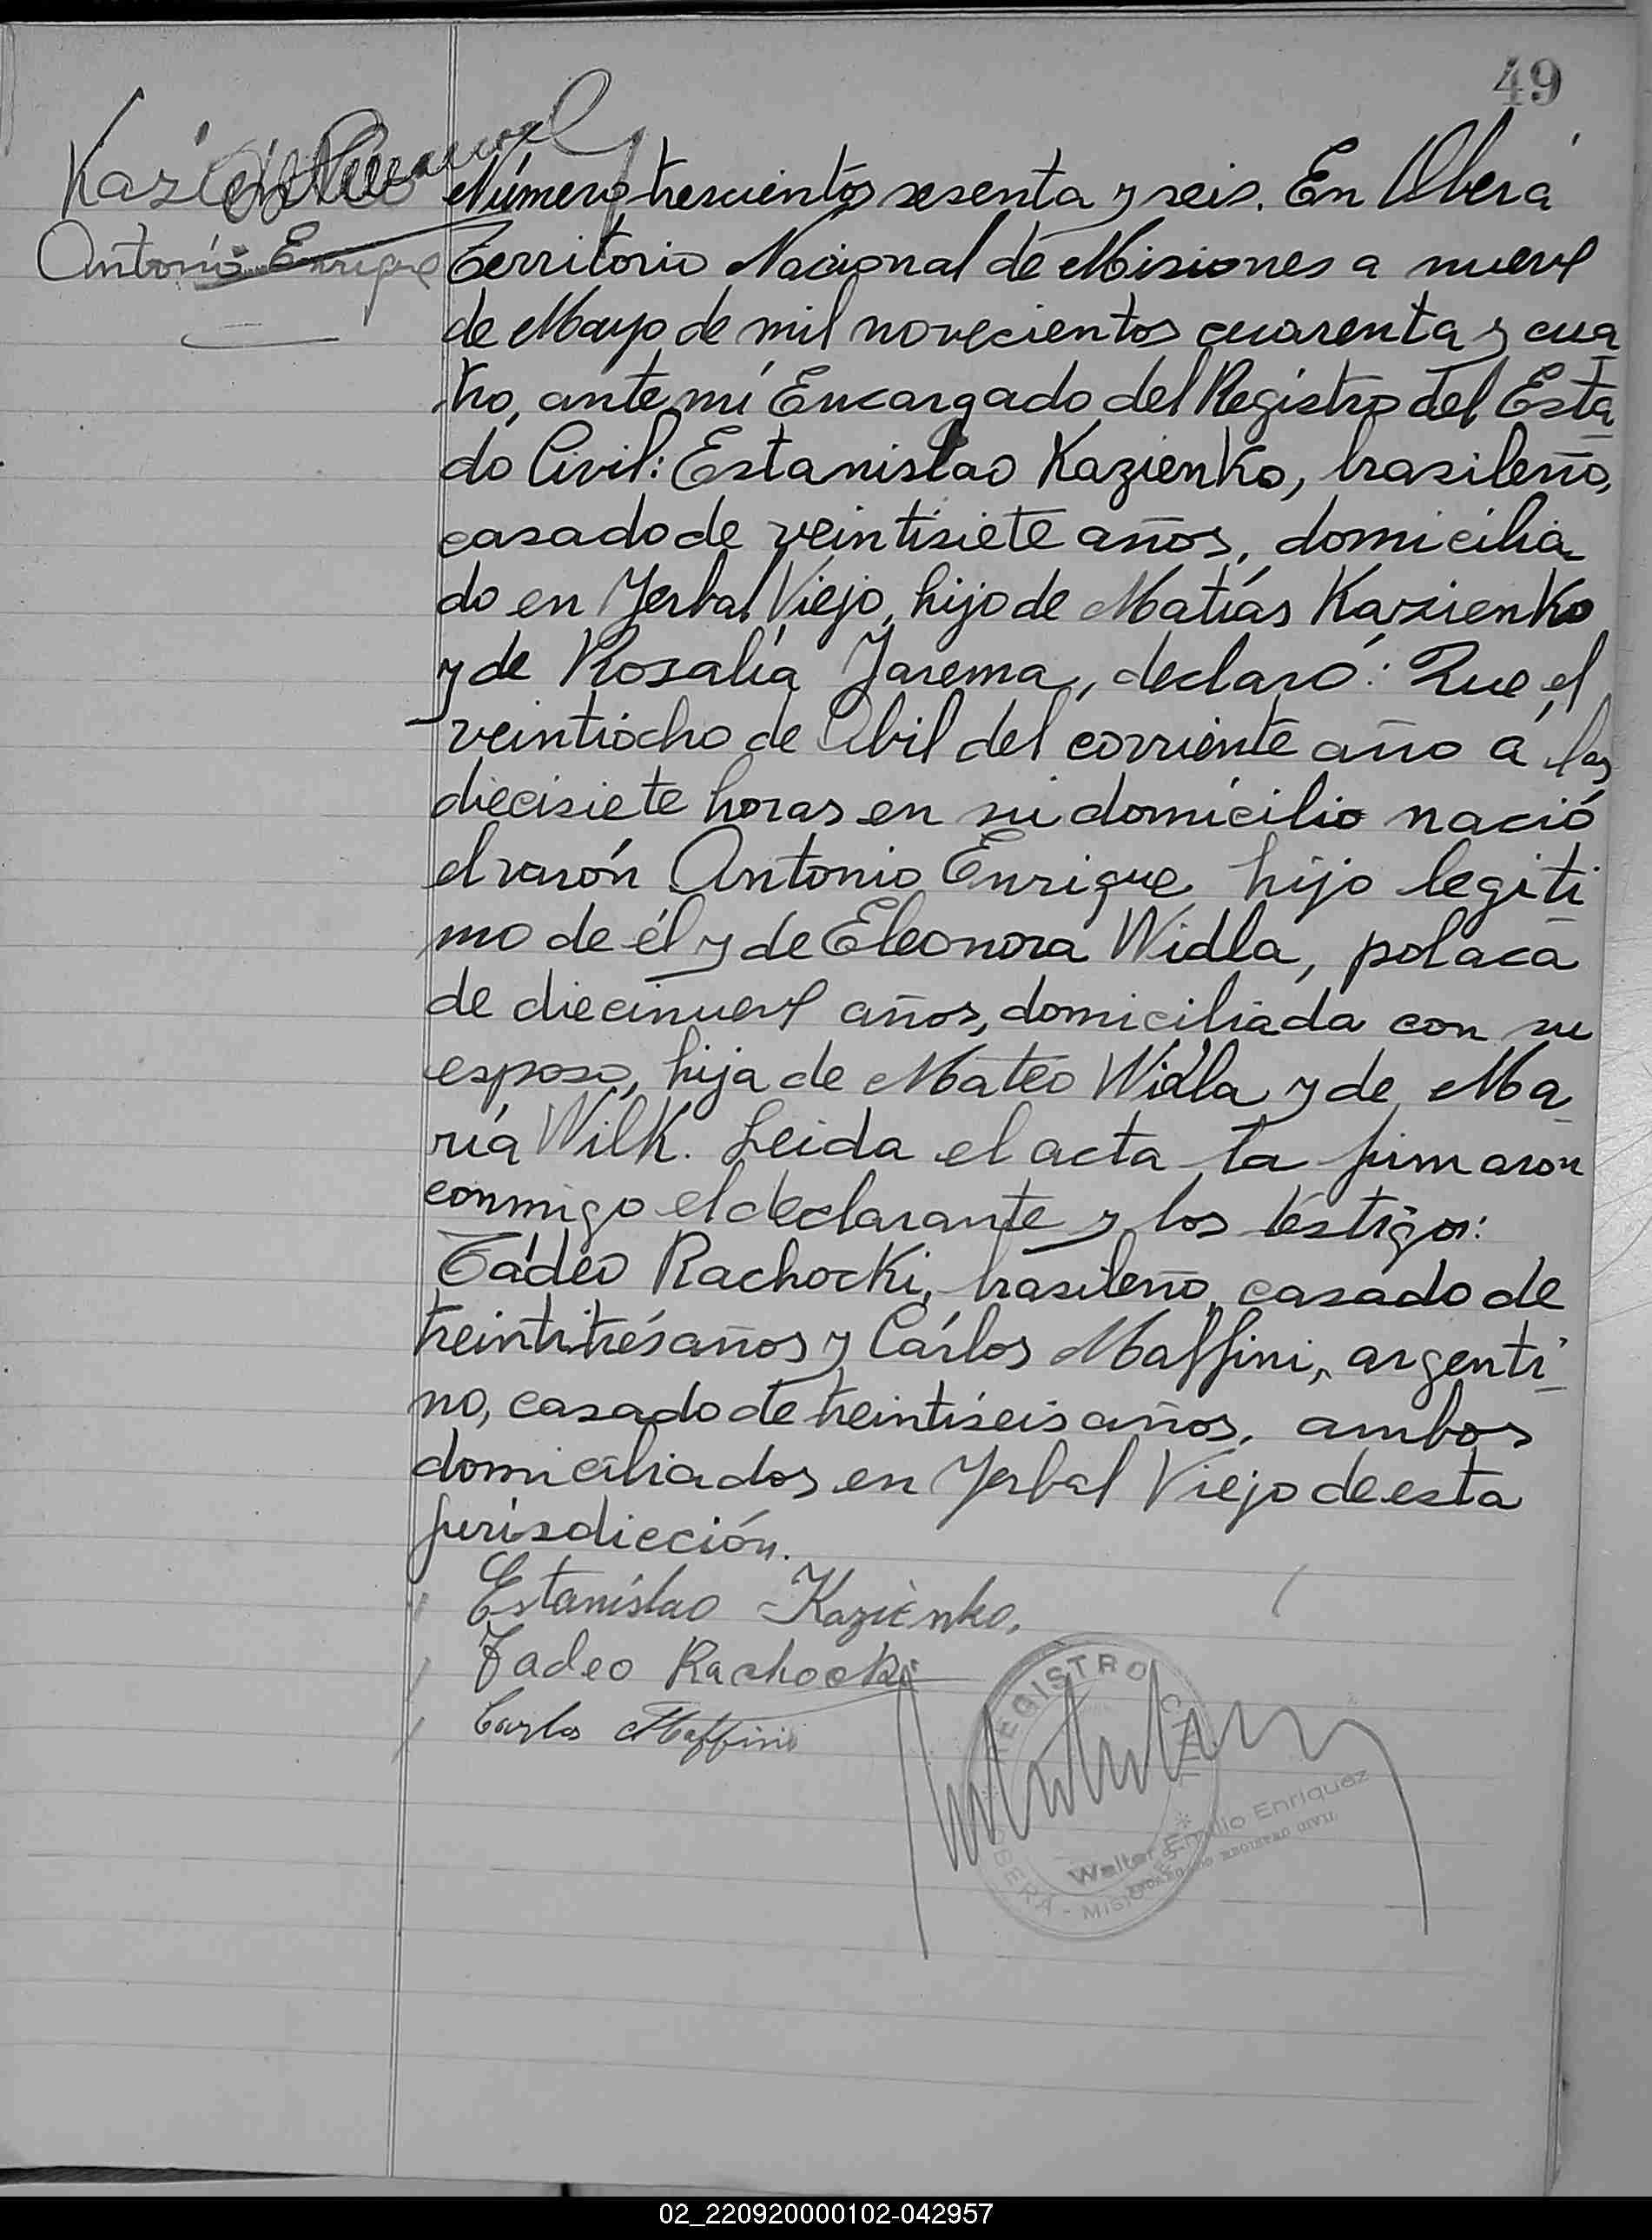 49
Kazienko
Antonio Enrique
Número trescientos sesenta y seis. En Oberá
Territorio Nacional de Misiones a nueve
de Mayo de mil novecientos cuarenta y cua
tro, ante mí Encargado del Registro del Esta
do Civil: Estanislao Kazienko, brasileño,
casado de veintisiete años, domicilia
do en Yerbal Viejo, hijo de Matías Kazienko
y de Rosalía Jarema, declaró: Que el
veintiocho de Abil del corriente año a las
diecisiete horas en su domicilio nació
el varón Antonio Enrique hijo legiti
mo de él y de Eleonora Widla, polaca
de diecinueve años, domiciliada con su
esposo, hija de Mateo Widla y de Ma
ría Wilk. Leida el acta la firmaron
conmigo el declarante y los testigos:
Tádeo Rachocki, brasileño, casado de
treintitrés años y Cárlos Maffini, argenti
no, casado de treintiseis años, ambos
domiciliados en Yerbal Viejo de esta
jurisdicción.
Estanislao Kazienko.
Tadeo Rachocki
Carlos Maffini
REGISTRO CIVIL
OBERÁ - MISIONES
Walter Emilio Enriquez
ENCARGADO REGISTRO CIVIL
02_220920000102-042957